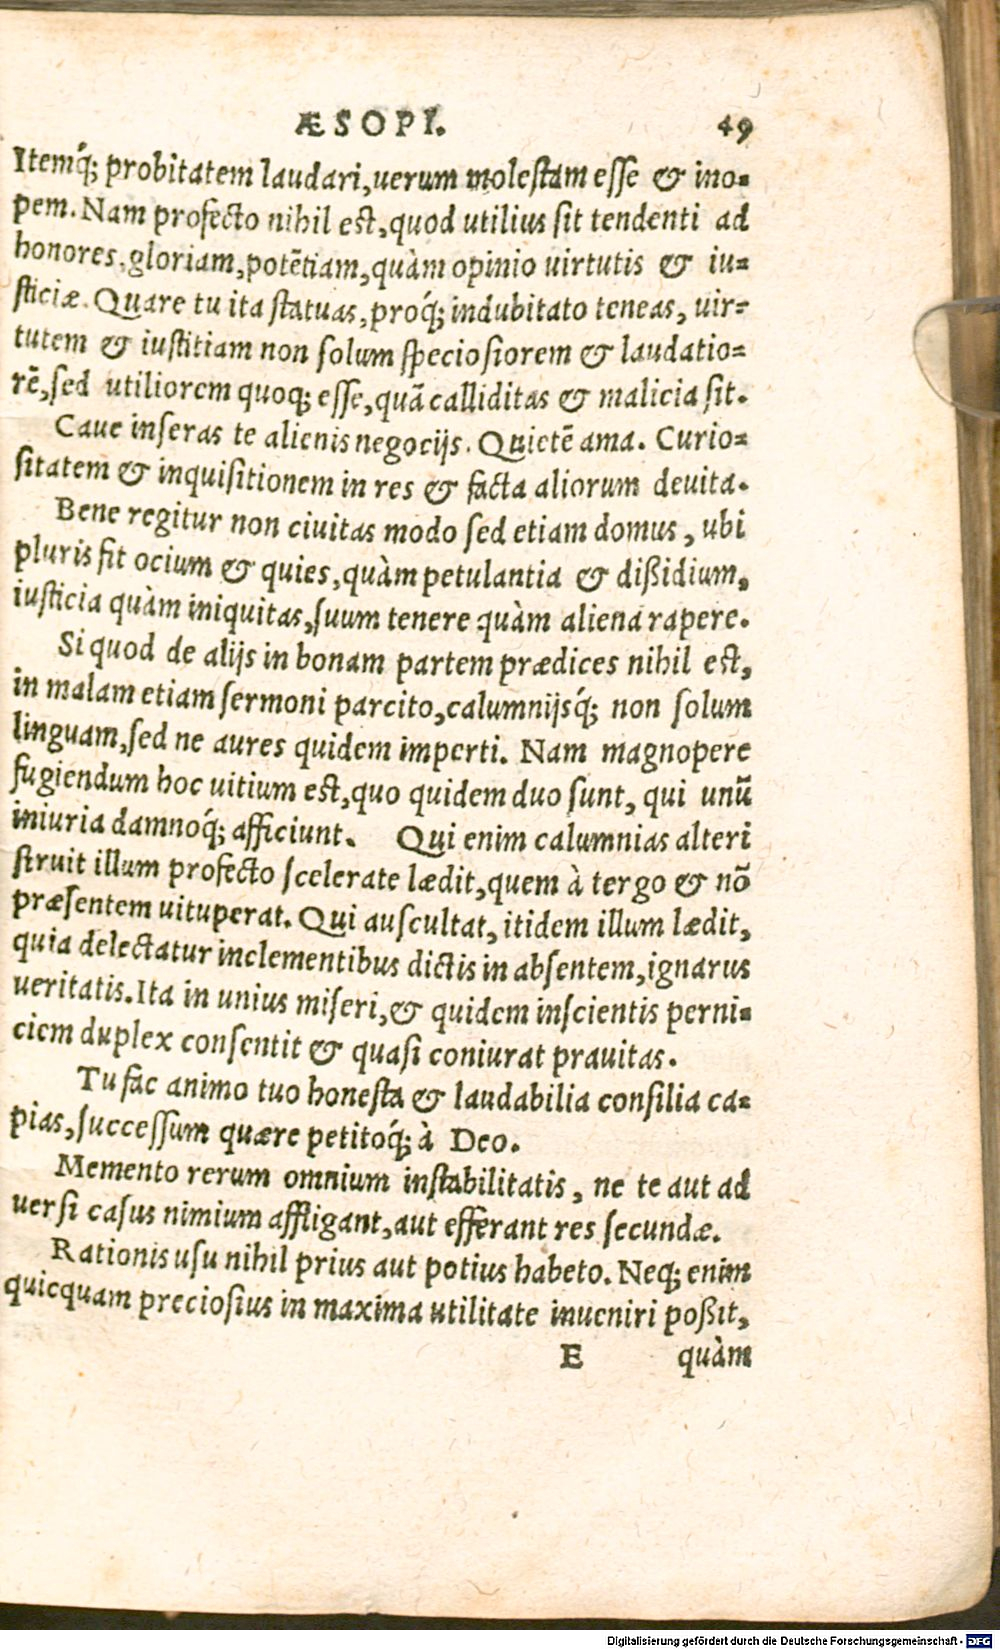 ÆSOPI. 49
Itemq́; probitatem laudari, uerum molestam esse & ino-
pem. Nam profecto nihil est, quod utilius sit tendenti ad
honores, gloriam, potētiam, quàm opinio uirtutis & iu-
sticiæ. Quare tu ita statuas, proq́; indubitato teneas, uir-
tutem & iustitiam non solum speciosiorem & laudatio-
rē, sed utiliorem quoq; esse, quā calliditas & malicia sit.
Caue inseras te alienis negocijs. Quietē ama. Curio-
sitatem & inquisitionem in res & facta aliorum deuita.
Bene regitur non ciuitas modo sed etiam domus, ubi
pluris fit ocium & quies, quàm petulantia & dißidium,
iusticia quàm iniquitas, suum tenere quàm aliena rapere.
Si quod de alijs in bonam partem prædices nihil est,
in malam etiam sermoni parcito, calumnijsq́; non solum
linguam, sed ne aures quidem imperti. Nam magnopere
fugiendum hoc uitium est, quo quidem duo sunt, qui unū
iniuria damnoq́; afficiunt. Qui enim calumnias alteri
struit illum profecto scelerate lædit, quem à tergo & nō
præsentem uituperat. Qui auscultat, itidem illum lædit,
quia delectatur inclementibus dictis in absentem, ignarus
ueritatis. Ita in unius miseri, & quidem inscientis perni-
ciem duplex consentit & quasi coniurat prauitas.
Tu fac animo tuo honesta & laudabilia consilia ca-
pias, successum quære petitoq́; à Deo.
Memento rerum omnium instabilitatis, ne te aut ad
uersi casus nimium affligant, aut efferant res secundæ.
Rationis usu nihil prius aut potius habeto. Neq; enim
quicquam preciosius in maxima utilitate inueniri poßit,
E quàm
Digitalisierung gefördert durch die Deutsche Forschungsgemeinschaft - DFG